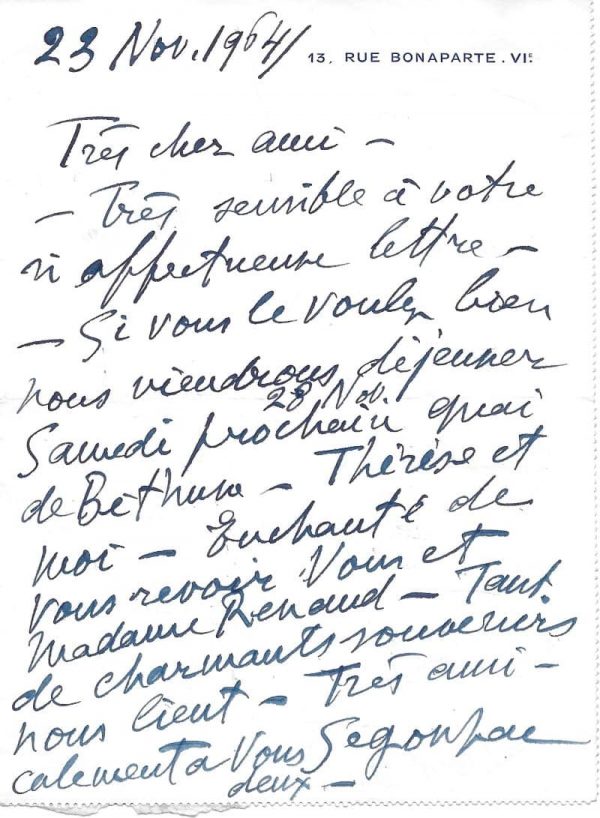 23 Nov. 1964/
13, RUE BONAPARTE. VIE
Très cher ami –
– Très sensible à votre
si affectueuse lettre –
– Si vous le voulez bien
nous viendrons déjeuner
28 Nov.
Samedi prochain quai
de Béthune – Thérèse et
moi – Enchanté de
vous revoir Vous et
Madame Renaud – Tant
de charmants souvenirs
nous lient – Très ami-
calement à Vous Segonzac
deux –